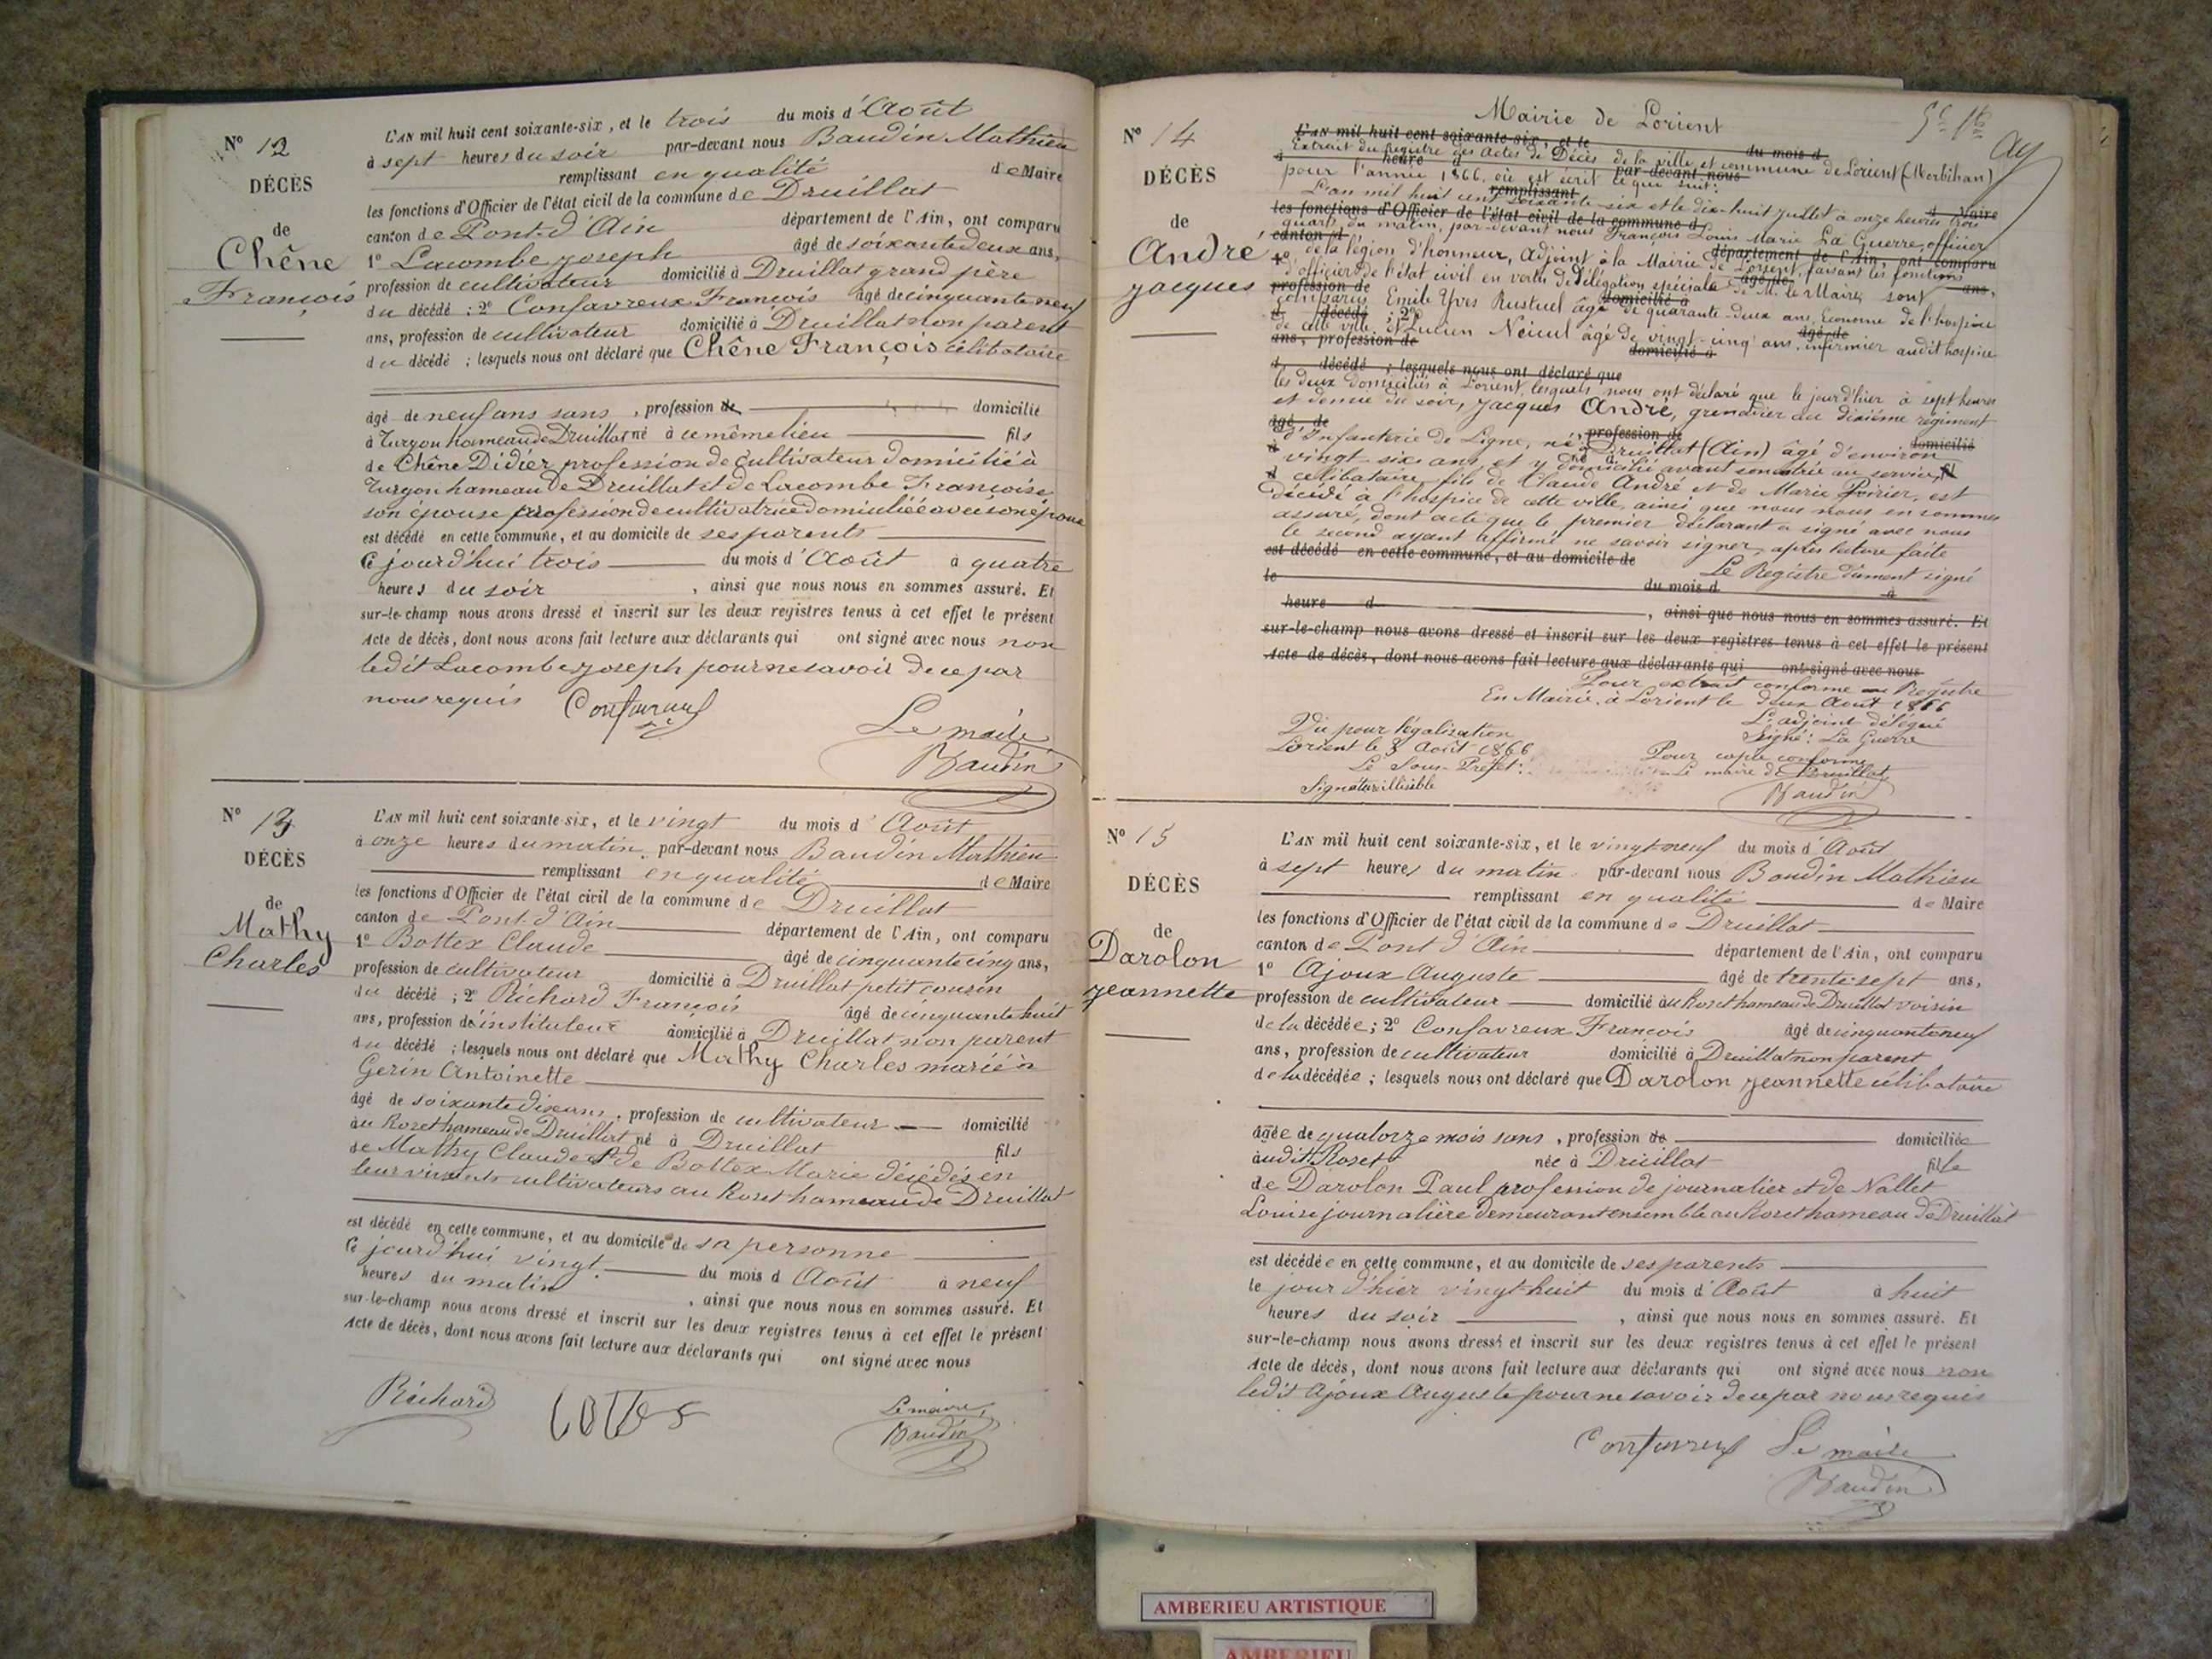 N° 12
DÉCÈS
de
Chêne
François
L'AN mil huit cent soixante-six, et le trois du mois d'Août
à sept heures du soir par-devant nous Baudin Mathieu
remplissant en qualité de Maire
les fonctions d'Officier de l'état civil de la commune de Druillat
canton de Pont-d'Ain département de l'Ain, ont comparu
1° Lacombe Joseph âgé de soixante deux ans,
profession de cultivateur domicilié à Druillat grand père
du décédé : 2° Confavreux François âgé de cinquante neuf
ans, profession de cultivateur domicilié à Druillat non parent
du décédé ; lesquels nous ont déclaré que Chêne François célibataire
âgé de neuf ans sans , profession de domicilié
à Turgon hameau de Druillat né à ce même lieu fils
de Chêne Didier profession de cultivateur domicilié à
Turgon hameau de Druillat et de Lacombe Françoise
son épouse profession de cultivatrice domiciliée avec son époux
est décédé en cette commune, et au domicile de ses parents
le jourd'hui trois du mois d'Août à quatre
heures du soir , ainsi que nous nous en sommes assuré. Et
sur-le-champ nous avons dressé et inscrit sur les deux registres tenus à cet effet le présent
Acte de décès, dont nous avons fait lecture aux déclarants qui ont signé avec nous non
ledit Lacombe Joseph pour ne savoir de ce par
nous requis Confavreux
Le maire
Baudin
N° 13
DÉCÈS
de
Mathy
Charles
L'AN mil huit cent soixante-six, et le vingt du mois d'Août
à onze heures du matin par-devant nous Baudin Mathieu
remplissant en qualité de Maire
les fonctions d'Officier de l'état civil de la commune de Druillat
canton de Pont-d'Ain département de l'Ain, ont comparu
1° Bottex Claude âgé de cinquante cinq ans,
profession de cultivateur domicilié à Druillat petit cousin
du décédé ; 2° Richard François âgé de cinquante huit
ans, profession d'instituteur domicilié à Druillat non parent
du décédé ; lesquels nous ont déclaré que Mathy Charles marié à
Gerin Antoinette
âgé de soixante dix ans , profession de cultivateur domicilié
au Roset hameau de Druillat né à Druillat fils
de Mathy Claude et de Bottex Marie décédés en
leur vivants cultivateurs au Roset hameau de Druillat
est décédé en cette commune, et au domicile de sa personne
le jourd'hui vingt du mois d'Août à neuf
heures du matin , ainsi que nous nous en sommes assuré. Et
sur-le-champ nous avons dressé et inscrit sur les deux registres tenus à cet effet le présent
Acte de décès, dont nous avons fait lecture aux déclarants qui ont signé avec nous
Richard
Le maire
Baudin
N° 14
DÉCÈS
de
André
Jacques
Mairie de Lorient
L'AN mil huit cent soixante-six, et le du mois d
Extrait du Registre des Actes de Décès de la ville et commune de Lorient (Morbihan)
à heure d par-devant nous
pour l'année 1866, où est écrit ce que suit :
remplissant
L'an mil huit cent soixante-six et le dix-huit juillet à onze heures trois
les fonctions d'Officier de l'état civil de la commune d Maire
quart du matin, par-devant nous François Louis Marie La Guerre, officier
canton d département de l'Ain, ont comparu
de la légion d'honneur, Adjoint à la Mairie de Lorient, faisant les fonctions
1° âgé de ans,
d'officier de l'état civil en vertu de délégation spéciale de M. le Maire, sont
profession de domicilié à
comparus Emile Yves Rusteul âgé de quarante-deux ans, Econome de l'hospice
d décédé ; 2° âgé de
de cette ville, et Lucien Neicul âgé de vingt-cinq ans, infirmier audit hospice
ans, profession de domicilié à
d décédé ; lesquels nous ont déclaré que
les deux domiciliés à Lorient, lesquels nous ont déclaré que le jour d'hier à sept heures
et demie du soir, Jacques André, grenadier au dixième régiment
âgé de profession de domicilié
d'Infanterie de Ligne, né à Druillat (Ain) âgé d'environ
vingt six ans, et y domicilié avant son entrée au service,
célibataire, fils de Claude André et de Marie Poirier, est
décédé à l'hospice de cette ville, ainsi que nous nous en sommes
assuré, dont acte que le premier déclarant a signé avec nous
le second ayant affirmé ne savoir signer, après lecture faite
est décédé en cette commune, et au domicile de
Le Registre dûment signé
le du mois d à
heure d , ainsi que nous nous en sommes assuré. Et
sur-le-champ nous avons dressé et inscrit sur les deux registres tenus à cet effet le présent
Acte de décès, dont nous avons fait lecture aux déclarants qui ont signé avec nous
Pour extrait conforme au Registre
En Mairie, à Lorient le deux Août 1866
L'adjoint délégué
Signé : La Guerre
Vu pour légalisation
Lorient le 3 Août 1866
Le Sous-Préfet :
Signature illisible
Pour copie conforme
Le maire de Druillat
Baudin
N° 15
DÉCÈS
de
Darolon
Jeannette
L'AN mil huit cent soixante-six, et le vingt-neuf du mois d'Août
à sept heures du matin par-devant nous Baudin Mathieu
remplissant en qualité de Maire
les fonctions d'Officier de l'état civil de la commune de Druillat
canton de Pont d'Ain département de l'Ain, ont comparu
1° Ajoux Auguste âgé de trente-sept ans,
profession de cultivateur domicilié au Roset hameau de Druillat voisin
de la décédée ; 2° Confavreux François âgé de cinquante neuf
ans, profession de cultivateur domicilié à Druillat non parent
de la décédée ; lesquels nous ont déclaré que Darolon Jeannette célibataire
âgée de quatorze mois sans , profession de domiciliée
audit Roset née à Druillat fille
de Darolon Paul profession de journalier et de Nallet
Louise journalière demeurant ensemble au Roset hameau de Druillat
est décédée en cette commune, et au domicile de ses parents
le jour d'hier vingt-huit du mois d'Août à huit
heures du soir , ainsi que nous nous en sommes assuré. Et
sur-le-champ nous avons dressé et inscrit sur les deux registres tenus à cet effet le présent
Acte de décès, dont nous avons fait lecture aux déclarants qui ont signé avec nous non
ledit Ajoux Auguste pour ne savoir de ce par nous requis
Confavreux Le maire
Baudin
AMBERIEU ARTISTIQUE
AMBERIEU